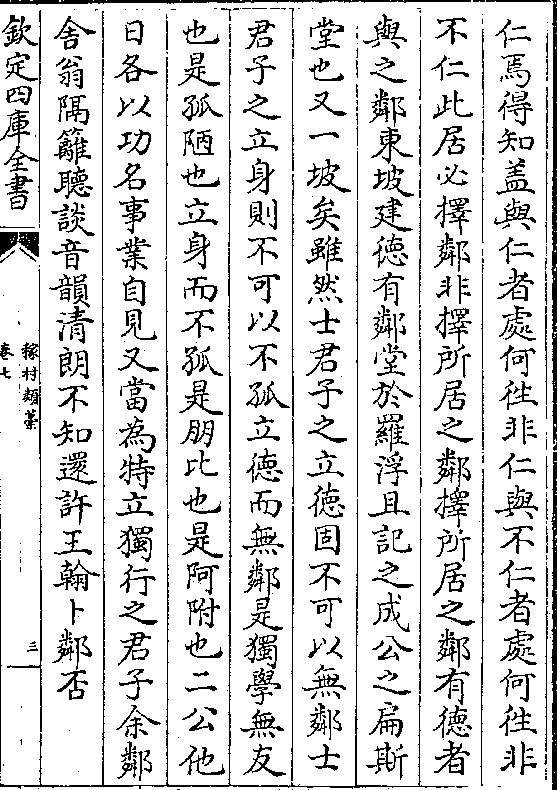 仁焉得知盖與仁者處何徃非仁與不仁者處何徃非
不仁此居必擇鄰非擇所居之鄰擇所居之鄰有德者
與之鄰東坡建德有鄰堂於羅浮且記之成公之扁斯
堂也又一坡矣雖然士君子之立德固不可以無鄰士
君子之立身則不可以不孤立德而無鄰是獨學無友
也是孤陋也立身而不孤是朋比也是阿附也二公他
日各以功名事業自見又當為特立獨行之君子余鄰
舍翁隔籬聽談音韻清朗不知還許王翰卜鄰否
欽定四庫全書
稼村類藁
卷七
三